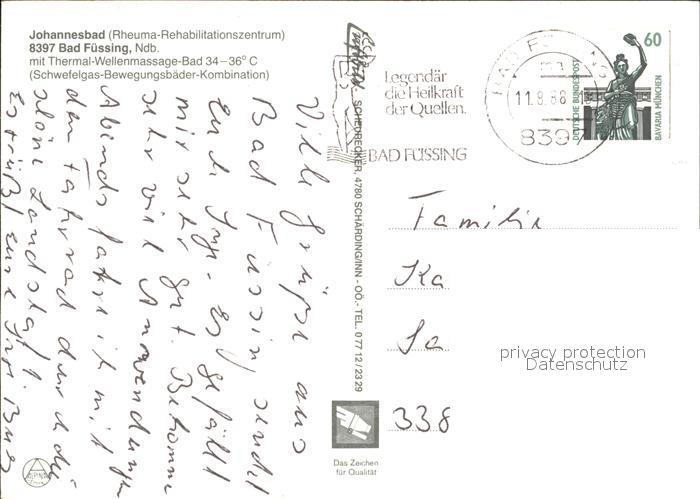 Johannesbad (Rheuma-Rehabilitationszentrum)
8397 Bad Füssing, Ndb.
mit Thermal-Wellenmassage-Bad 34–36° C
(Schwefelgas-Bewegungsbäder-Kombination)
Viele Grüße aus
Bad Füssing sendet
Euch Inge. Es gefällt
mir sehr gut. Bekomme
sehr viel Anwendungen
Abends fahre ich mit
dem Fahrrad durch die
schöne Landschaft.
Es grüßt Eure
SCHEURECKER, 4780 SCHÄRDING/INN - OÖ. - TEL. 0 77 12 / 23 29
Legendär
die Heilkraft
der Quellen.
BAD FÜSSING
11.8.88
8397
60
DEUTSCHE BUNDESPOST
BAVARIA MÜNCHEN
Familie
Ka
So
338
privacy protection
Datenschutz
Das Zeichen
für Qualität